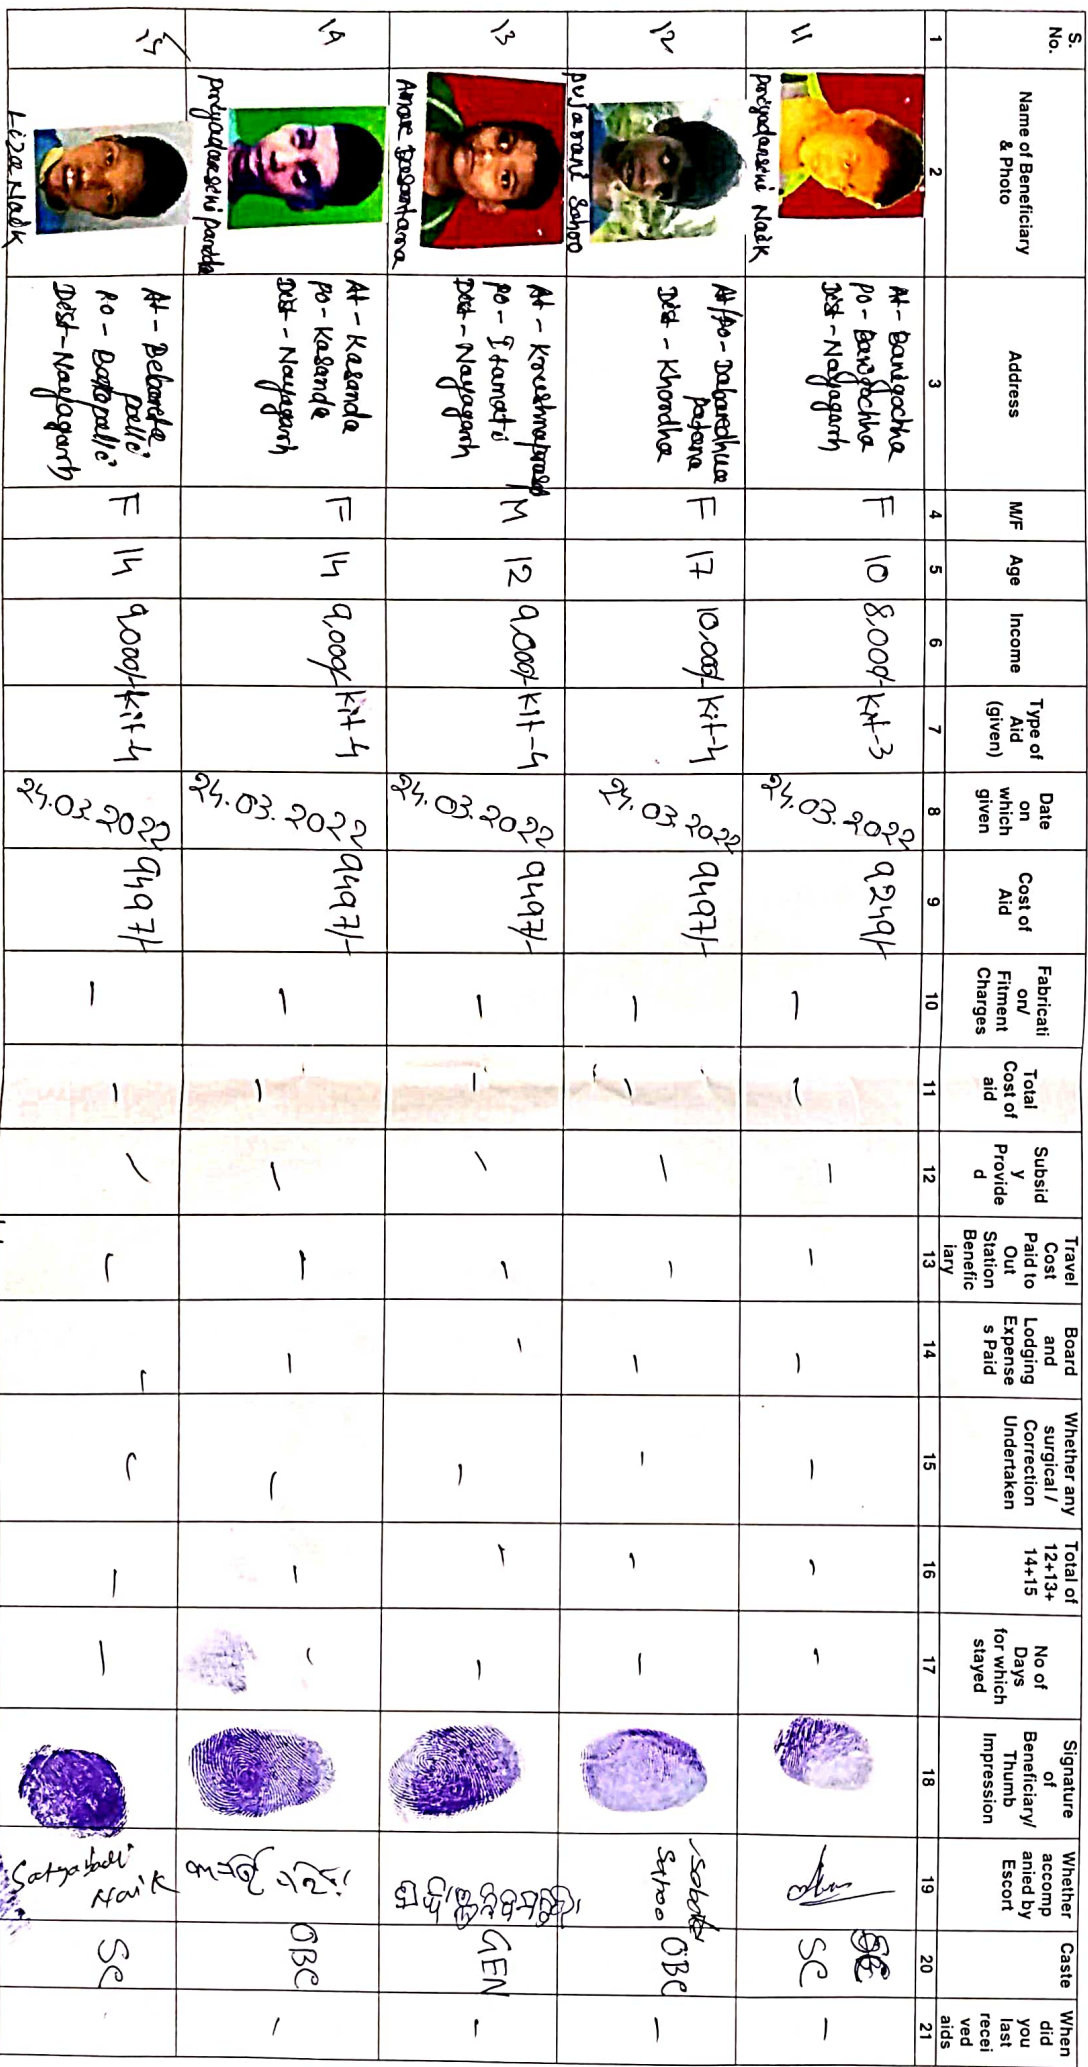 S. No.
Name of Beneficiary & Photo
Address
M/F
Age
Income
Type of Aid (given)
Date on which given
Cost of Aid
Fabricati on/ Fitment Charges
Total Cost of aid
Subsid y Provide d
Travel Cost Paid to Out Station Benefic iary
Board and Lodging Expense s Paid
Whether any surgical / Correction Undertaken
Total of 12+13+ 14+15
No of Days for which stayed
Signature of Beneficiary/ Thumb Impression
Whether accomp anied by Escort
Caste
When did you last recei ved aids
1 2 3 4 5 6 7 8 9 10 11 12 13 14 15 16 17 18 19 20 21
11
Priyadarsini Naik
At - Banigochha
Po - Banigochha
Dist - Nayagarh
F 10 8,000/- Kit-3 24.03.2022 9249/- — — — — — — — —
SC
—
12
Pujarani Sahoo
At/Po - Dabardhua
patana
Dist - Khordha
F 17 10,000/- Kit-4 24.03.2022 9497/- — — — — — — — —
Sahoo
OBC —
13
At - Krushnaprasad
Po - Itamati
Dist - Nayagarh
M 12 9,000/- Kit-4 24.03.2022 9497/- — — — — — — — —
GEN —
14
Priyadarsini Panda
At - Kasanda
Po - Kasanda
Dist - Nayagarh
F 14 9,000/- Kit-4 24.03.2022 9497/- — — — — — — — —
OBC —
15
Liza Naik
At -
palli
Po -
Dist - Nayagarh
F 14 9,000/- Kit-4 24.03.2022 9497/- — — — — — — — —
Satyabadi
Naik
SC